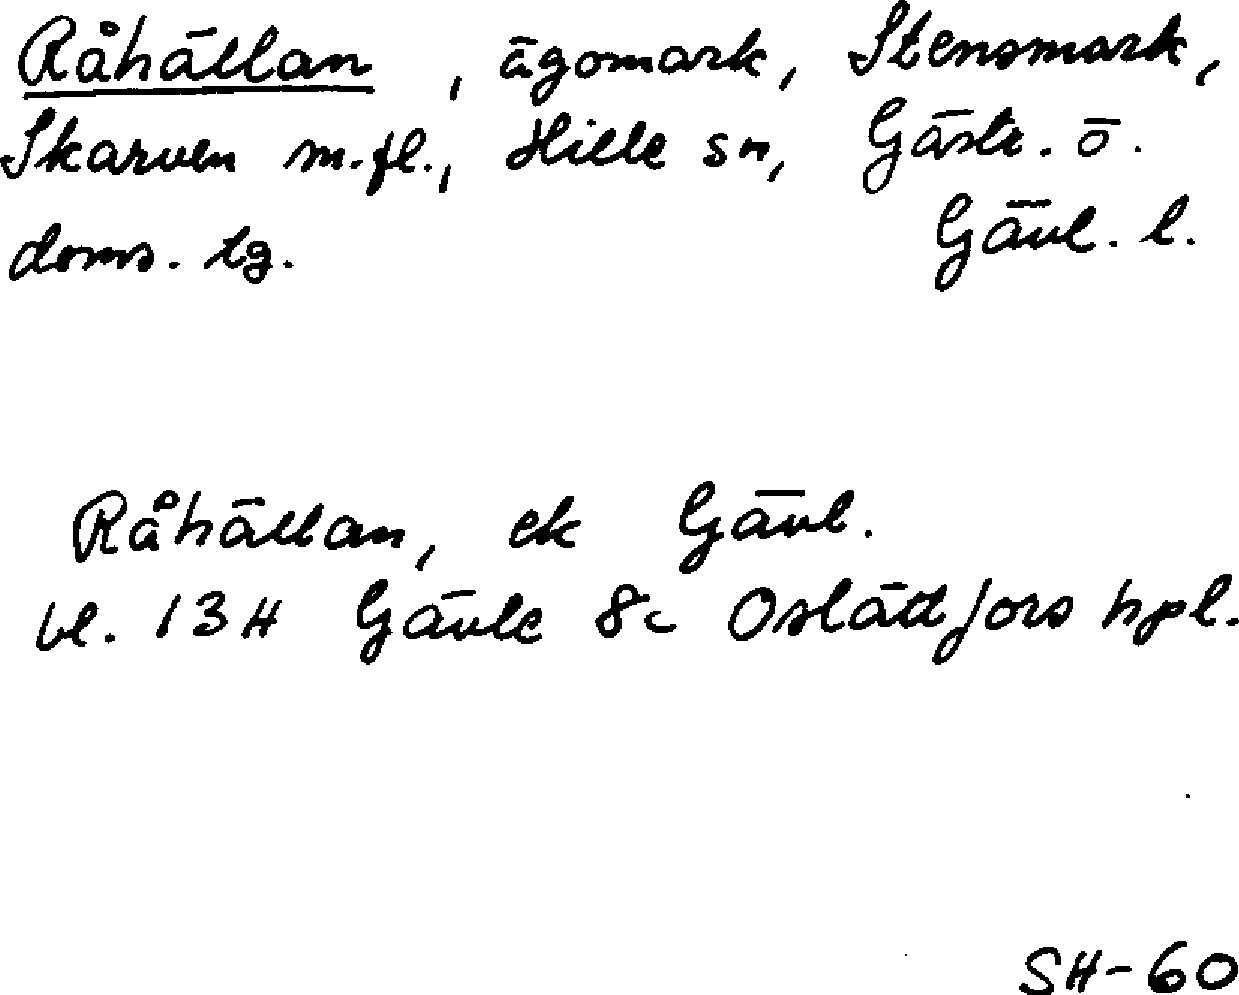 Råhällan, ägomark, Stensmark,
Skarven m.fl., Hille sn, Gästr. ö.
doms. tg. Gävl. l.
Råhällan, ek Gävl.
bl. 13H Gävle 8c Oslättfors hpl.
SH-60